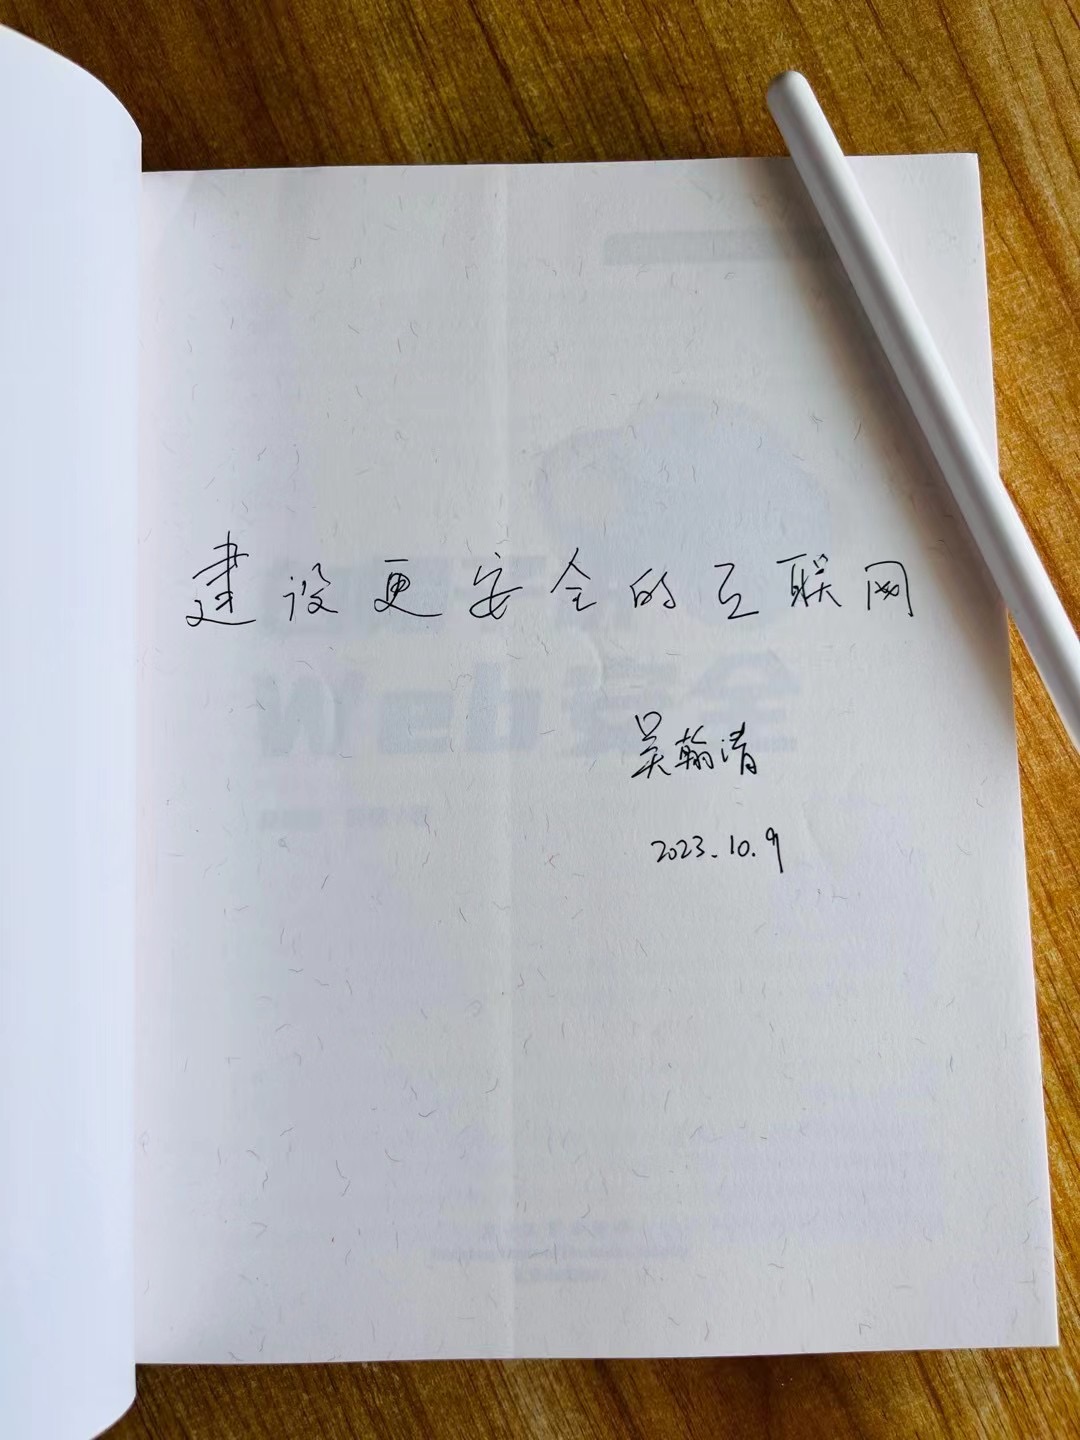 建设更安全的互联网
吴翰清
2023.10.9